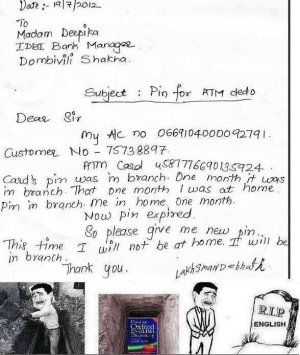 Date :- 19/7/2012
To
Madam Deepika
IDBI Bank Manager
Dombivili Shakha.
Subject : Pin for ATM dedo
Dear Sir
My A/c no 0669104000092791.
Customer No - 75738897.
ATM Card 4587776690135924.
Card's pin was in branch. One month it was
in branch. That one month I was at home.
Pin in branch. Me in home. One month.
Now pin expired.
So please give me new pin..
This time I will not be at home. I will be
in branch.
Thank you.
Oxford
ENGLISH
R.I.P
ENGLISH